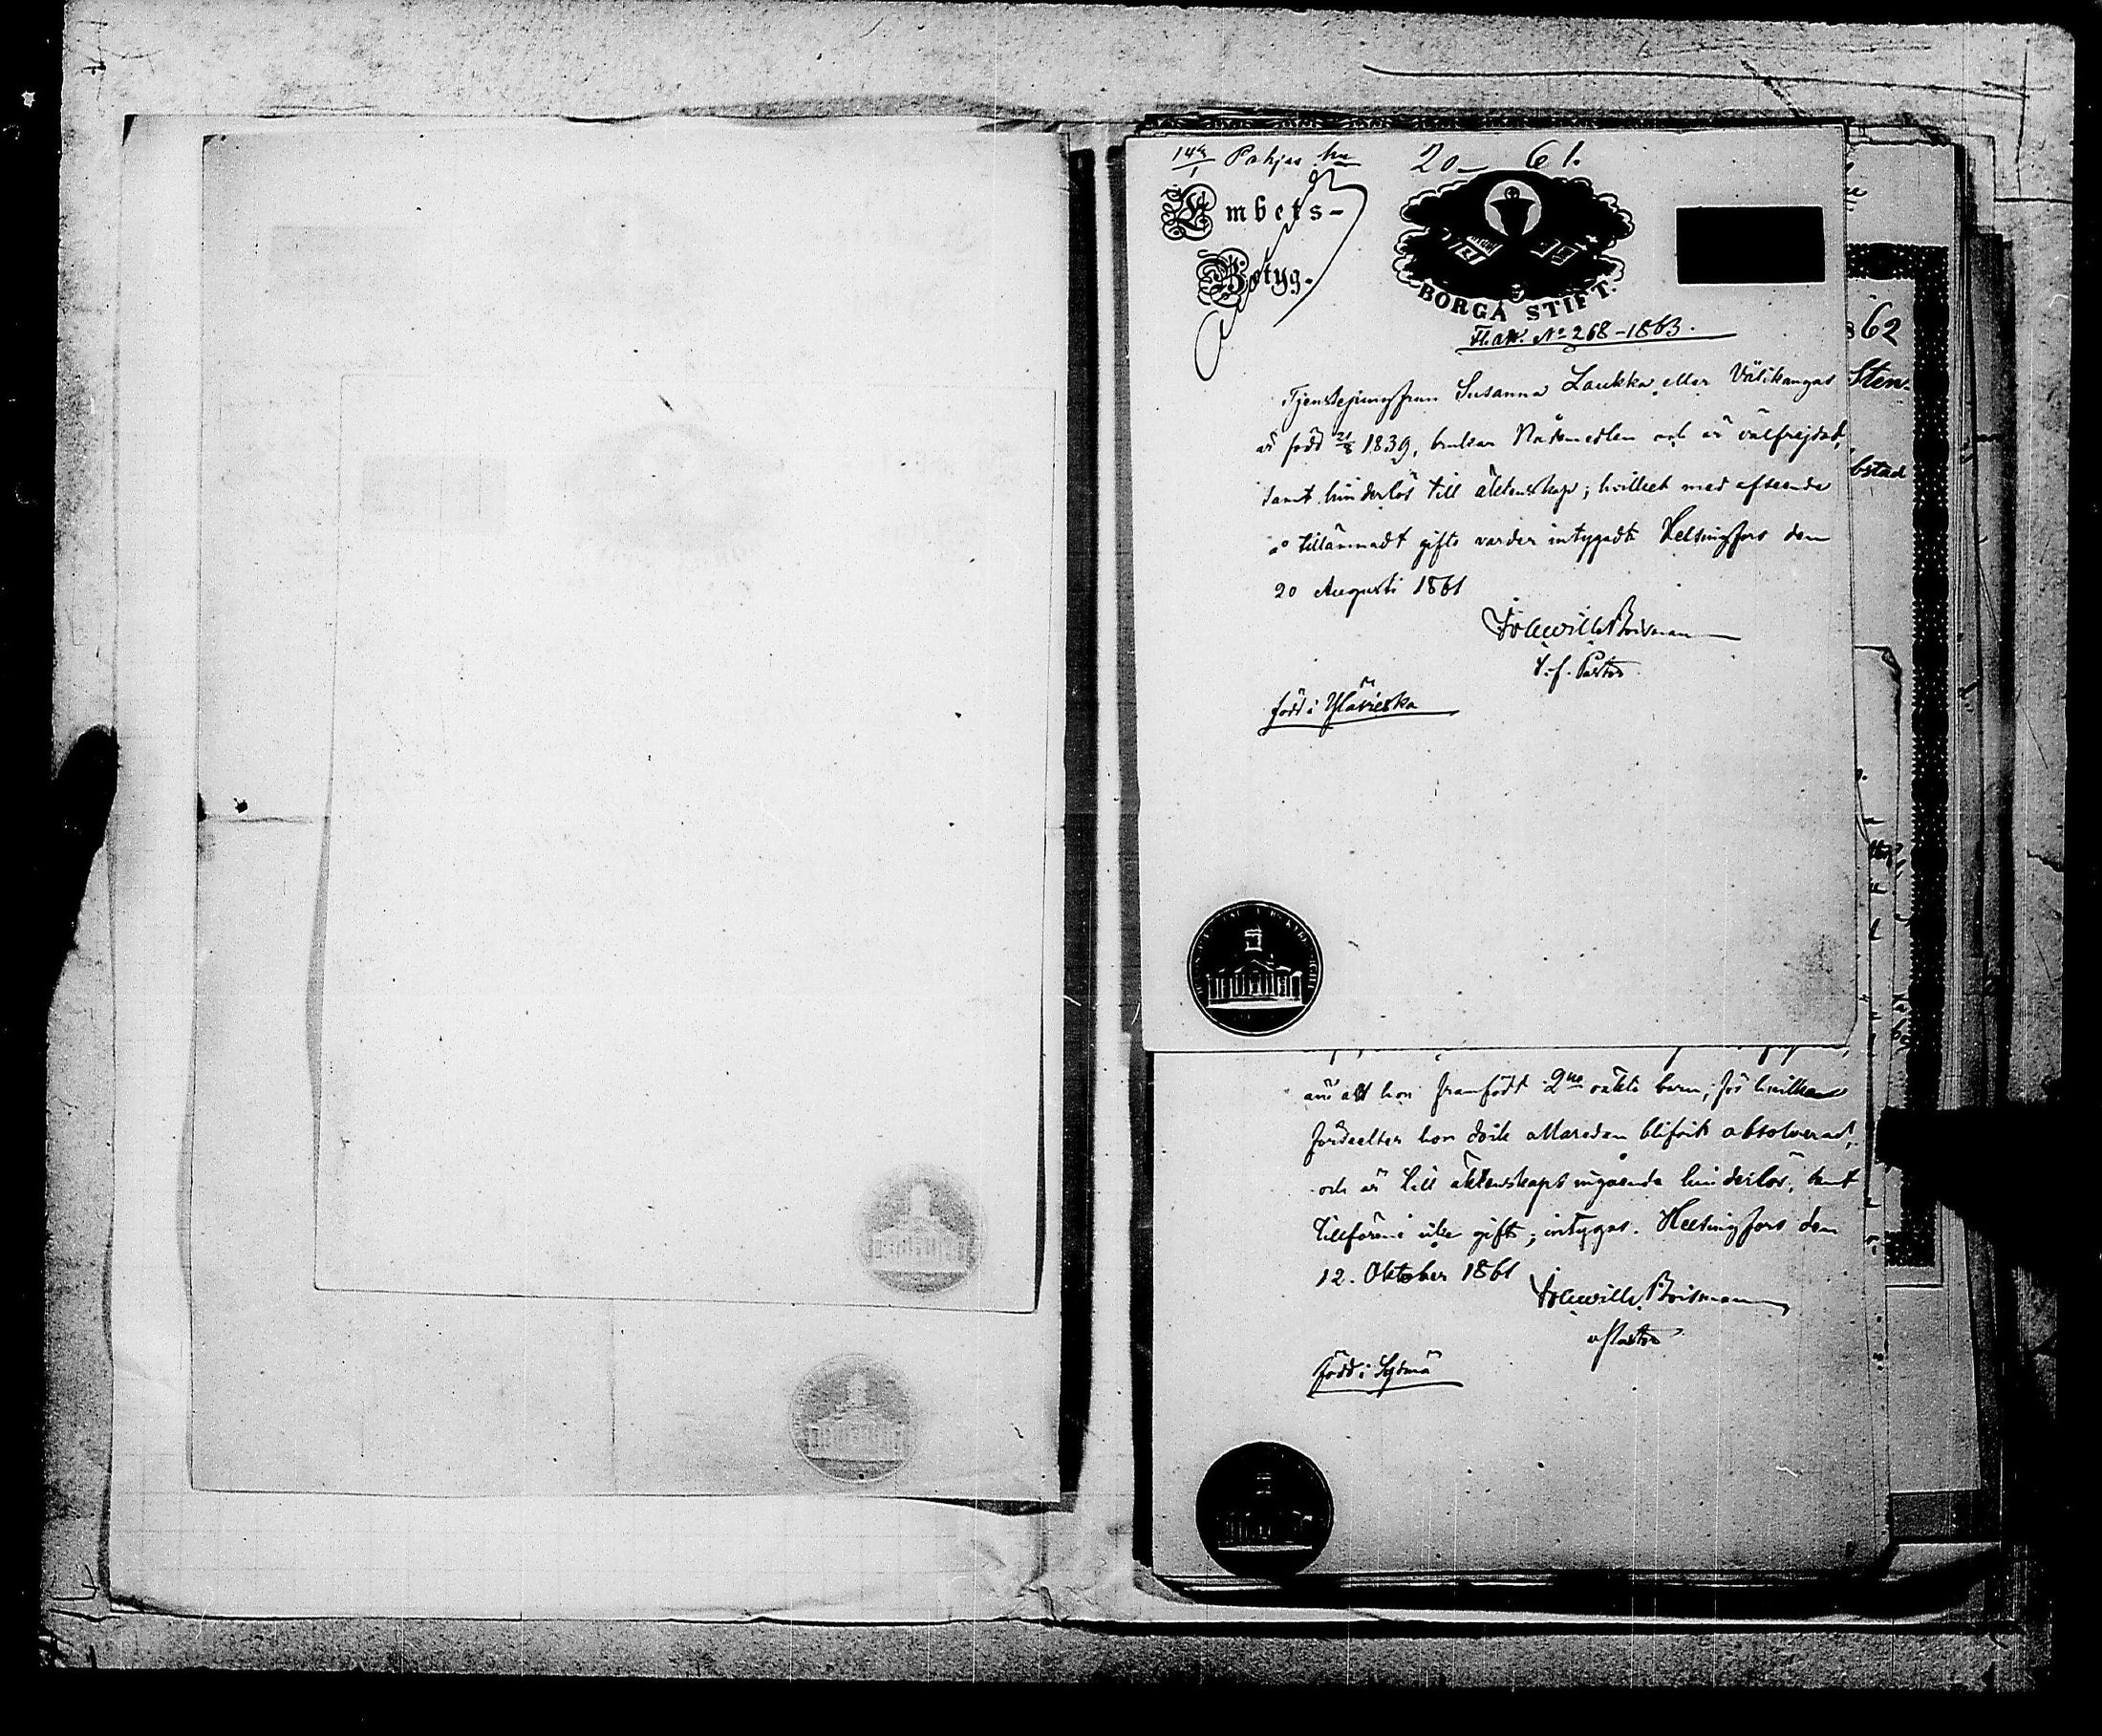 20 61.
Embets-
Betyg.
BORGÅ STIFT.
Fl. att. No 268-1863.
Tjenstejungfrun Susanna Laukka eller Välikangas
är född 21/8 1839, brukar Nådemedlen och är välfrejdad,
samt hinderlös till äktenskap; hvilket med afseende
å tillämnadt gifte varder intygadt. Helsingfors den
20 Augusti 1861
t. f. Pastor
född i Ylivieska
862
Sten-
bstad
att hon framfödt 2ne oäkta barn, för hvilka
hon doch allaredan blifvit absolverad,
och är till äktenskaps ingående hinderlös, samt
tillförene icke gift, intygas. Helsingfors den
12. Oktober 1861
v Pastor
född i Sysmä